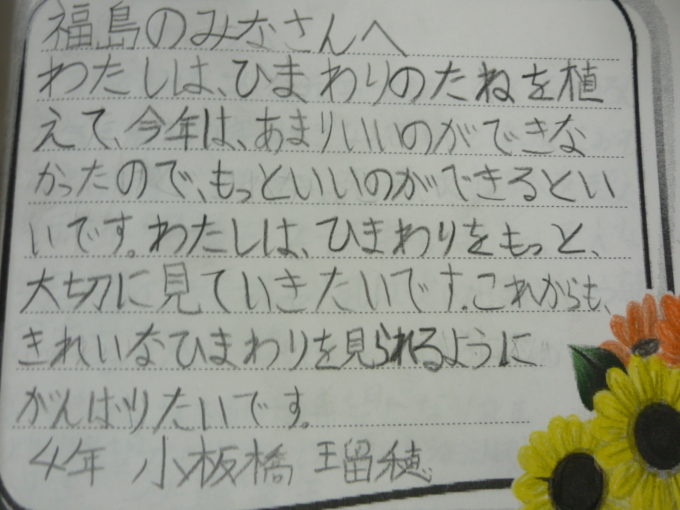 福島のみなさんへ
わたしは、ひまわりのたねを植
えて、今年は、あまりいいのができな
かったので、もっといいのができるとい
いです。わたしは、ひまわりをもっと、
大切に見ていきたいです。これからも、
きれいなひまわりを見られるように
がんばりたいです。
4年 小板橋 瑠穂